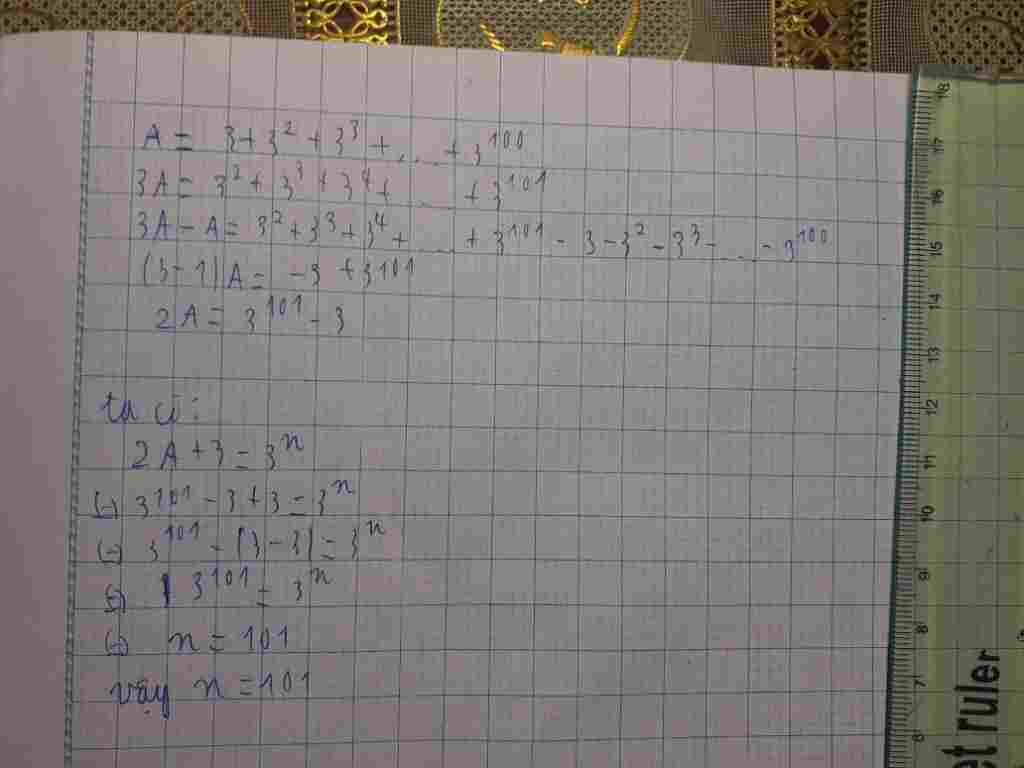 A = 3 + 3² + 3³ + ... + 3¹⁰⁰
3A = 3² + 3³ + 3⁴ + ... + 3¹⁰¹
3A - A = 3² + 3³ + 3⁴ + ... + 3¹⁰¹ - 3 - 3² - 3³ - ... - 3¹⁰⁰
(3 - 1)A = -3 + 3¹⁰¹
2A = 3¹⁰¹ - 3
ta có:
2A + 3 = 3ⁿ
(=) 3¹⁰¹ - 3 + 3 = 3ⁿ
(=) 3¹⁰¹ - (3 - 3) = 3ⁿ
(=) 3¹⁰¹ = 3ⁿ
(=) n = 101
vậy n = 101
18
17
16
15
14
13
12
11
10
9
8
7
6
et ruler